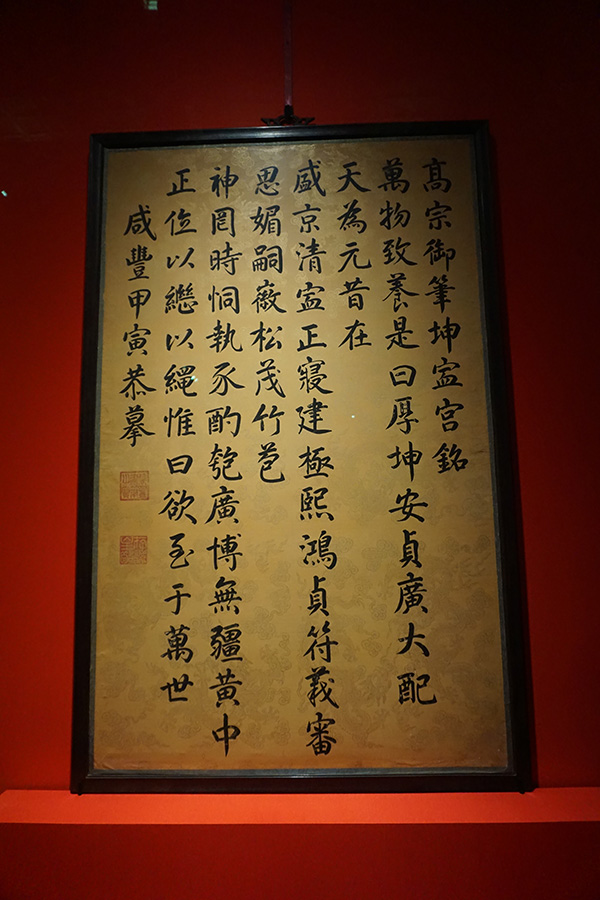 高宗御筆坤寍宮銘
萬物致養是曰厚坤安貞廣大配
天為元昔在
盛京清寍正寢建極熙鴻貞符義審
思媚嗣徽松茂竹苞
神罔時恫執豕酌匏廣博無疆黃中
正位以繼以繩惟曰欲至于萬世
咸豐甲寅恭摹